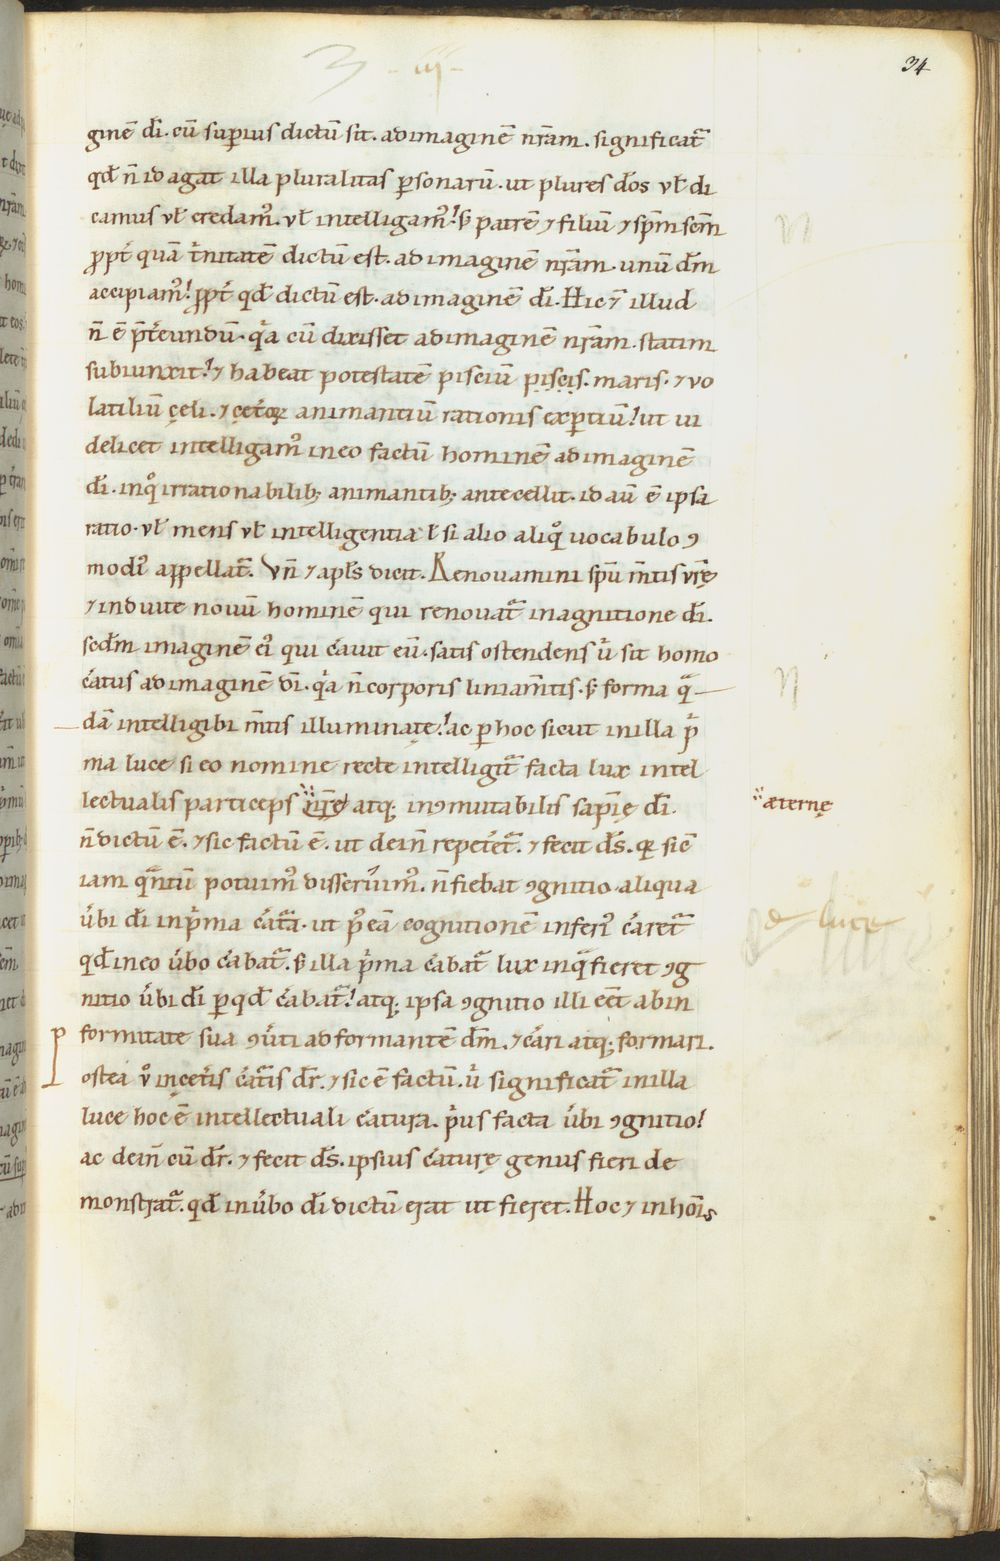 3 - iij -
34
ginē dī. cū superius dictū sit. ad imaginē nr̄am. significat᷑
qđ n̄ id agat illa pluralitas ꝑsonarū. ut plures d̄os vł di
camus vł credamꝰ. vł intelligamꝰ! s; patrē ⁊ filiū ⁊ sp̄m scm̄
ꝓpt̄ quā t̓nitatē dictū est. ad imaginē nr̄am. unū dm̄
accipiamꝰ! ꝓpt̄ qđ dictū est. ad imaginē dī. Hic ⁊ illud
n̄ ē p̄t̓eundū. q̓a cū dixisset ad imaginē nr̄am. statim
subiunxit! ⁊ habeat potestatē pisciū pisc̣is. maris. ⁊ vo
latiliū cęli. ⁊ cęt̓oꝝ animantiū rationis exꝑtiū! ut ui
delicet intelligamꝰ in eo factū hominē ad imaginē
dī. in q̊ irrationabilib; animantib; antecellit. id aū ē ipsa
ratio. vł mens vł intelligentia ł si alio aliq̊ uocabulo ꝯ
modiꝰ appellat᷑. Vn̄ ⁊ apls̄ dicit. Renouamini spū m̄tis vr̄ę
⁊ induite nouū hominē qui renouat᷑ in agnitione dī.
scd̄m imaginē eiꝰ qui c̓auit eū. satis ostendens u̓ sit homo
c̓atus ad imaginē dī. q̓a n̄ corporis liniam̄tis. s; forma q̄
dā intelligibi m̄tis illuminatę! ac ꝑ hoc sicut in illa p̓
ma luce si eo nomine recte intelligit᷑ facta lux intel
lectualis particeps nr̄ę atq; inꝯmutabilis sapīę dī.
ꝶternę
n̄ dictū ē. ⁊ sic factū ē. ut dein̄ repet̓et᷑. ⁊ fecit ds̄. qꝛ sic̄
iam q̄ntū potuimꝰ disseruimꝰ. n̄ fiebat ꝯgnitio aliqua
u̓bi dī in p̓ma c̓at᷑a. ut p̓ eā cognitionē inferiꝰ c̓aret᷑
qđ in eo u̓bo c̓abat᷑. s; illa p̓ma c̓abat᷑ lux in q̄ fieret ꝯg
de luce
nitio u̓bi dī ꝑ qđ c̓abat᷑! atq; ipsa ꝯgnitio illi ec̄t ab in
formitate sua ꝯu̓ti ad formantē dm̄. ⁊ c̓ari atq; formari.
Postea v̊ in cęt̓is c̓at᷑is dr̄. ⁊ sic ē factū. u̓ significat᷑ in illa
luce hoc ē intellectuali c̓atura. p̓us facta u̓bi ꝯgnitio!
ac dein̄ cū dr̄. ⁊ fecit ds̄. ipsius c̓aturę genus fieri de
monstrat᷑. qđ in u̓bo dī dictū erat ut fieret. Hoc ⁊ in hōis